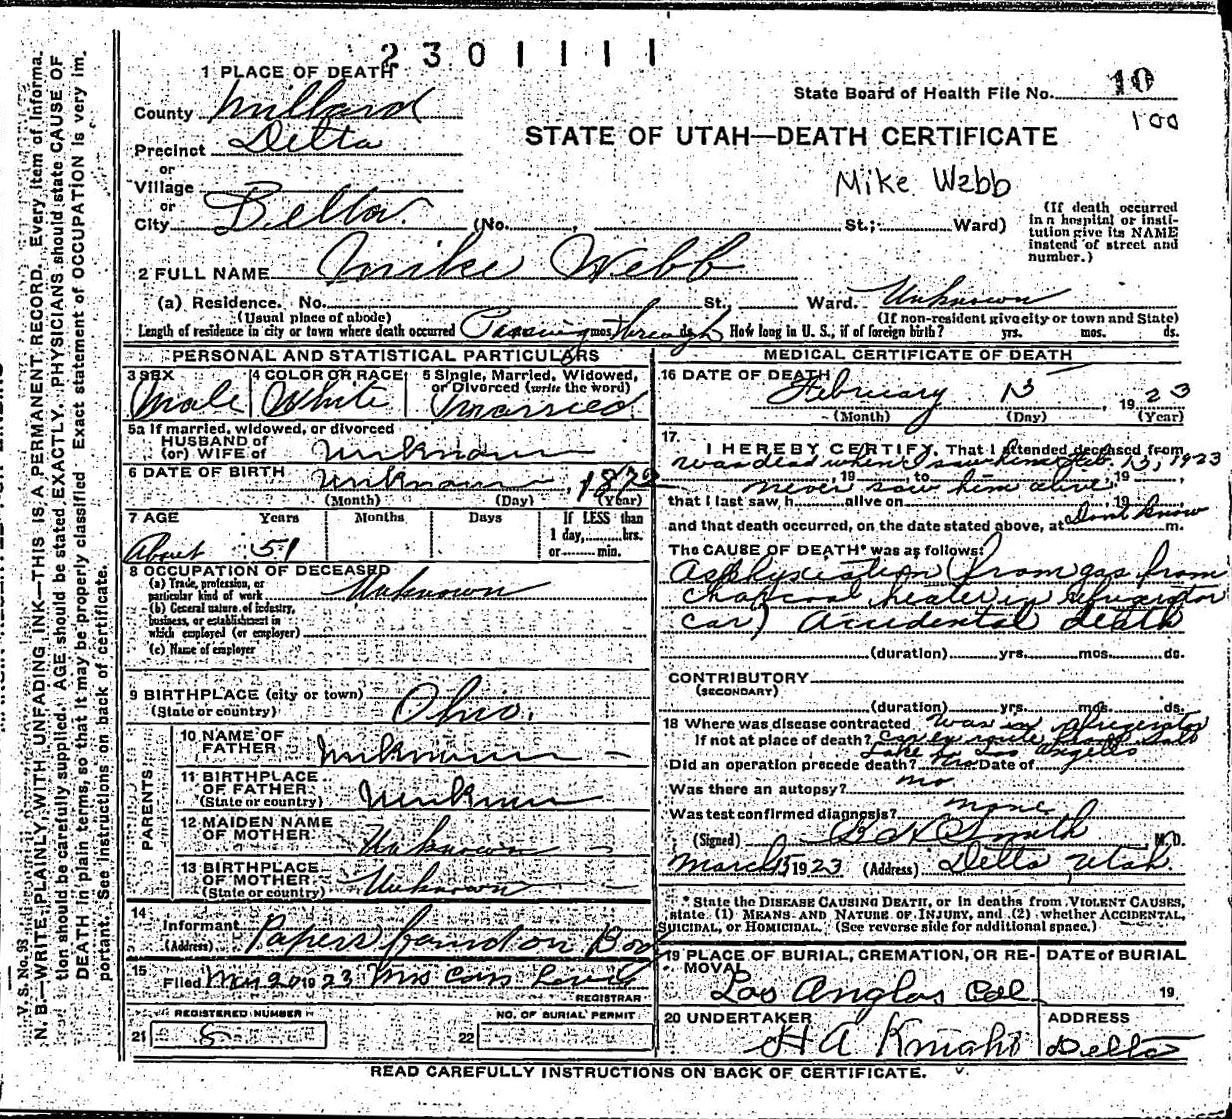 2301111
1 PLACE OF DEATH
County Millard
State Board of Health File No. 10
100
Precinct Delta
STATE OF UTAH—DEATH CERTIFICATE
or
Village
Mike Webb
or
City Delta. (No. St.; Ward)
(If death occurred
in a hospital or insti-
tution give its NAME
instead of street and
number.)
2 FULL NAME Mike Webb
(a) Residence. No. St., Ward. Unknown
(Usual place of abode) (If non-resident give city or town and State)
Length of residence in city or town where death occurred Passing mos. through ds. How long in U. S., if of foreign birth? yrs. mos. ds.
PERSONAL AND STATISTICAL PARTICULARS
3 SEX
Male
4 COLOR OR RACE
White
5 Single, Married, Widowed,
or Divorced (write the word)
Married
5a If married, widowed, or divorced
HUSBAND of
(or) WIFE of Unknown
6 DATE OF BIRTH Unknown, 1872
(Month) (Day) (Year)
7 AGE Years Months Days If LESS than
1 day, hrs.
About 51 or min.
8 OCCUPATION OF DECEASED
(a) Trade, profession, or
particular kind of work Unknown
(b) General nature of industry,
business, or establishment in
which employed (or employer)
(c) Name of employer
9 BIRTHPLACE (city or town)
(State or country) Ohio.
PARENTS
10 NAME OF
FATHER Unknown
11 BIRTHPLACE
OF FATHER
(State or country) Unknown
12 MAIDEN NAME
OF MOTHER Unknown
13 BIRTHPLACE
OF MOTHER
(State or country) Unknown
14
Informant Papers found on Body
(Address)
15
Filed Mar 20 1923 Mrs Lewis
REGISTRAR
REGISTERED NUMBER
21 8
NO. OF BURIAL PERMIT
22
MEDICAL CERTIFICATE OF DEATH
16 DATE OF DEATH
February 13, 1923
(Month) (Day) (Year)
17.
I HEREBY CERTIFY, That I attended deceased from
was dead when I saw him Feb. 13, 1923
, 19 , to , 19 ,
never saw him alive
that I last saw h alive on , 19
and that death occurred, on the date stated above, at Dont know m.
The CAUSE OF DEATH* was as follows:
Asphyxiation (from gas from
charcoal heater in refrigerator
car) Accidental death
(duration) yrs. mos. ds.
CONTRIBUTORY
(SECONDARY)
(duration) yrs. mos. ds.
18 Where was disease contracted Was in refrigerator
If not at place of death? car en route from Salt
Lake to Los Angeles
Did an operation precede death? No Date of
Was there an autopsy? no
Was test confirmed diagnosis? none
(Signed) Smith M. D.
March 15 1923 (Address) Delta, Utah.
* State the DISEASE CAUSING DEATH, or in deaths from VIOLENT CAUSES,
state (1) MEANS AND NATURE OF INJURY, and (2) whether ACCIDENTAL,
SUICIDAL, or HOMICIDAL. (See reverse side for additional space.)
19 PLACE OF BURIAL, CREMATION, OR RE-
MOVAL
Los Anglos Cal
DATE of BURIAL
19
20 UNDERTAKER
H A Knight
ADDRESS
Delta
READ CAREFULLY INSTRUCTIONS ON BACK OF CERTIFICATE.
V. S. No. 98
N. B.—WRITE PLAINLY, WITH UNFADING INK—THIS IS A PERMANENT RECORD. Every item of Informa-
tion should be carefully supplied. AGE should be stated EXACTLY. PHYSICIANS should state CAUSE OF
DEATH in plain terms, so that it may be properly classified Exact statement of OCCUPATION is very im-
portant. See instructions on back of certificate.